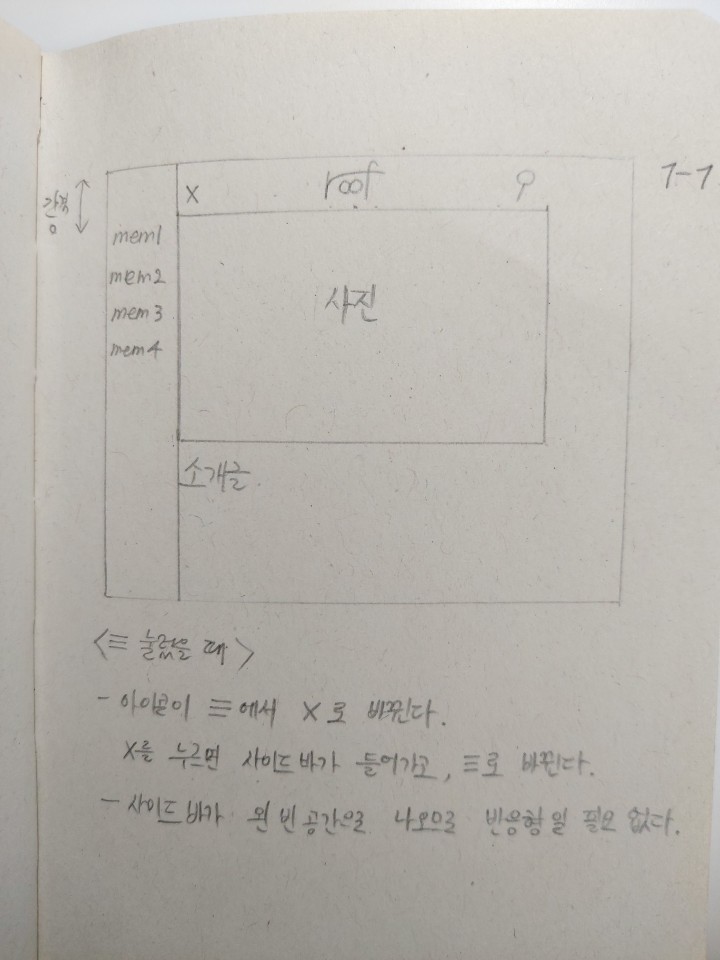 1-1
X roof
간격
mem1
mem2
mem3
mem4
사진
소개글.
<≡ 눌렀을 때>
- 아이콘이 ≡에서 X로 바뀐다.
X를 누르면 사이드바가 들어가고, ≡로 바뀐다.
- 사이드바가 왼 빈공간으로 나오므로 반응형일 필요 없다.